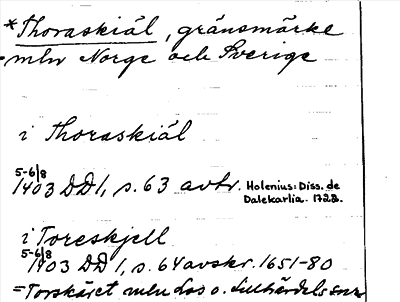 *Thoraskiäl, gränsmärke
mln Norge och Sverige
i Thoraskiäl
5-6/8
1403 DD1, s. 63 avtr. Holenius: Diss. de
Dalekarlia. 1722.
i Toreskjell
5-6/8
1403 DD 1, s. 64 avskr. 1651-80
= Torskäret mln Los o. Lillhärdals snr